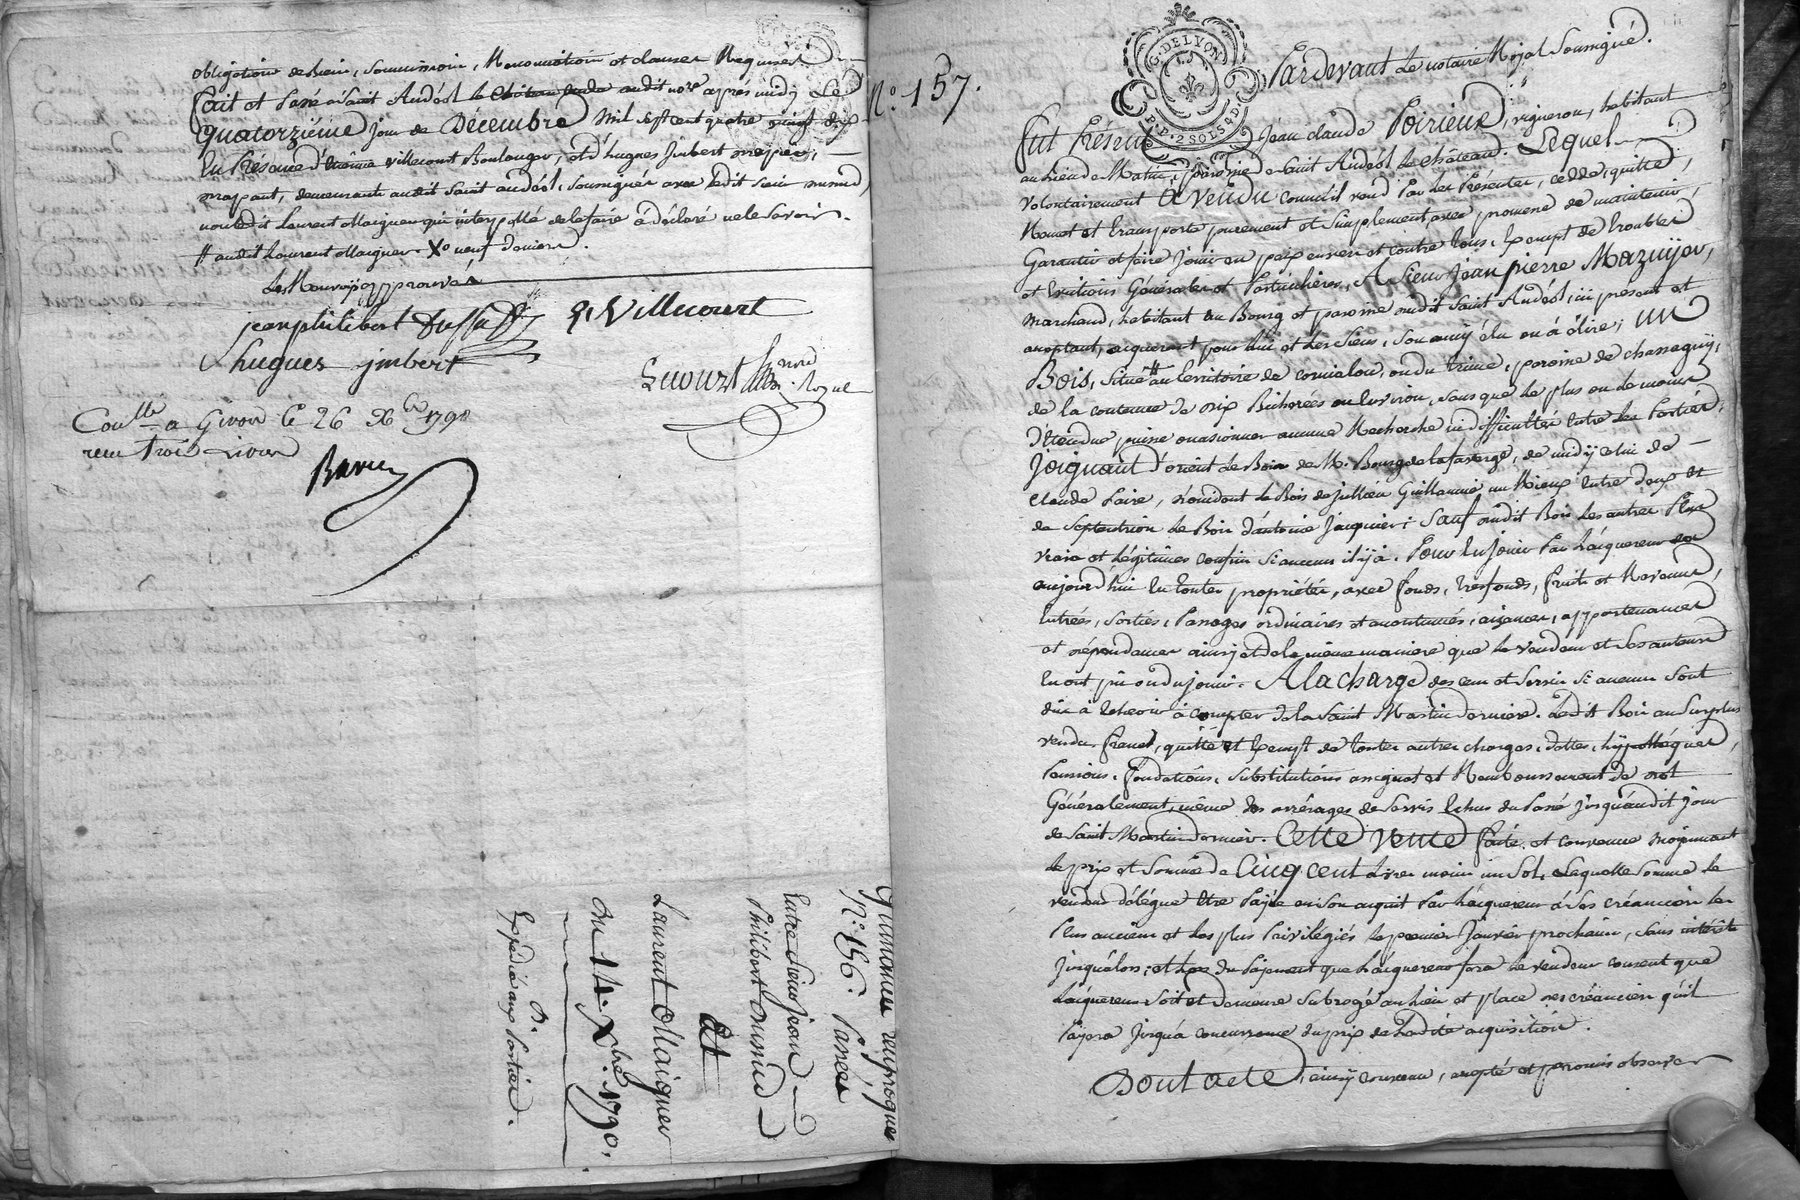 obligation de Bien, soumission, Renonciation et clauses Requises
fait et Passé à Saint Andéol le Château audit nore après midy Le
quatorzième jour de Décembre mil sept cent quatre vingt dix
En Présence d'Etienne Villecourt Boulanger, et d'hugues Jmbert
demeurants audit Saint andéol, soussignés avec ledit sieur
non ledit Laurent Maigner qui interpellé de le faire a déclaré ne le savoir.
# audit Laurent Maigner. X neuf deniers.
Les Renvoys approuvés
jean philibert E. Villecourt
hugues jmbert
nore Royal
Conlle a Givor le 26 Xbre 1790
reçu Trois Livres
Grimonne réciproque
N.o 156. Passée
Entre Sieur Jean
Philibert
et
Laurent Maigner
Du 14. Xbre 1790.
Expédiée aux Parties.
N.o 157.
G. DE LYON
P.P. 2 SOLS 4 D
Pardevant Le notaire Royal Soussigné.
Fut Présent Jean claude Poirieux, vigneron, habitant
au Lieu de Matru, paroisse de saint Andéol le château. Lequel
volontairement A vendu comme il vend Par les Présentes, cedde, quitte,
Remet et transporte purement et simplement avec promesse de maintenir,
Garantir et faire Jouir en paix envers et contre tous, Exempt de troubles
et Evictions Générales et Particulières, A Sieur Jean pierre Mazuyer,
Marchand, habitant au Bourg et paroisse dudit Saint Andéol, ici présent et
acceptant, acquereur pour lui et les siens, son amy élu ou à élire; un
Bois, situé # au territoire de cornialou, ou du trune, paroisse de chassagny,
de la contenue de dix Bicherées ou Environ, sans que le plus ou le moins
d'Etendue puisse occasionner aucune Recherche ni difficultés Entre les Parties,
Joignant d'orient le Bois de M. Bourg de la faverge, de midy celui de
claude Paire, d'occident le Bois de jullien Guillaume un Rieux Entre deux et
de septentrion le Bois d'antoine Jacquier; Sauf dudit Bois les autres Plus
vrais et légitimes confins si aucuns il y a. Pour En Jouir Par L'acquereur dès
aujourd'hui En toutes propriétés, avec fonds, tresfonds, fruits et Revenus,
Entrées, sorties, Passages ordinaires et accoutumés, aisances, appartenances
et dépendances ainsy et de la même maniere que le vendeur et ses auteurs
En ont pû ou du jouir. A la charge des cens et servis si aucuns sont
dus à Echeoir à compter de la Saint Martin derniere. Ledit Bois au surplus
vendu franc, quitte et Exempt de toutes autres charges, dettes, hypothéques,
Pensions, fondations, substitutions et Remboursement de dot
Généralement, même des arrérages de servis Echus du Passé jusqu'audit jour
de Saint Martin dernier. Cette vente faite et convenue moyennant
le prix et somme de Cinq cent Livres moins un sol, Laquelle somme le
vendeur délégue Etre Payée en son acquit Par L'acquereur à ses créanciers les
Plus anciens et les plus Privilégiés le premier Janvier prochain, sans intérêts
jusqu'alors; et lors du Payement que L'acquereur fera le vendeur consent que
L'acquereur soit et demeure subrogé au lieu et place des créanciers qu'il
Payera jusqu'à concurrence du prix de Ladite acquisition.
Dont acte, ainsy convenu, accepté et promis observer